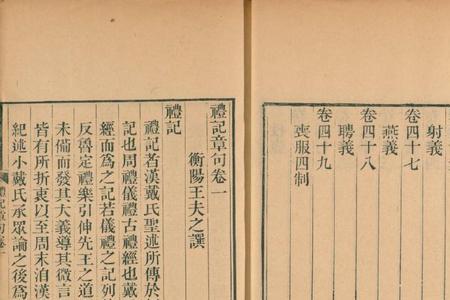 射義
卷四十七
燕義
卷四十八
聘義
卷四十九
喪服四制
禮記章句卷一
衡陽王夫之譔
禮記
禮記者漢戴氏聖述所傳於
記也周禮儀禮古禮經也戴
經而爲之記若儀禮之記列
反魯定禮樂引伸先王之道
未備而發其大義導其微言
皆有所折衷以至周末洎漢
紀述小戴氏承眾論之後爲
禮記章句卷一